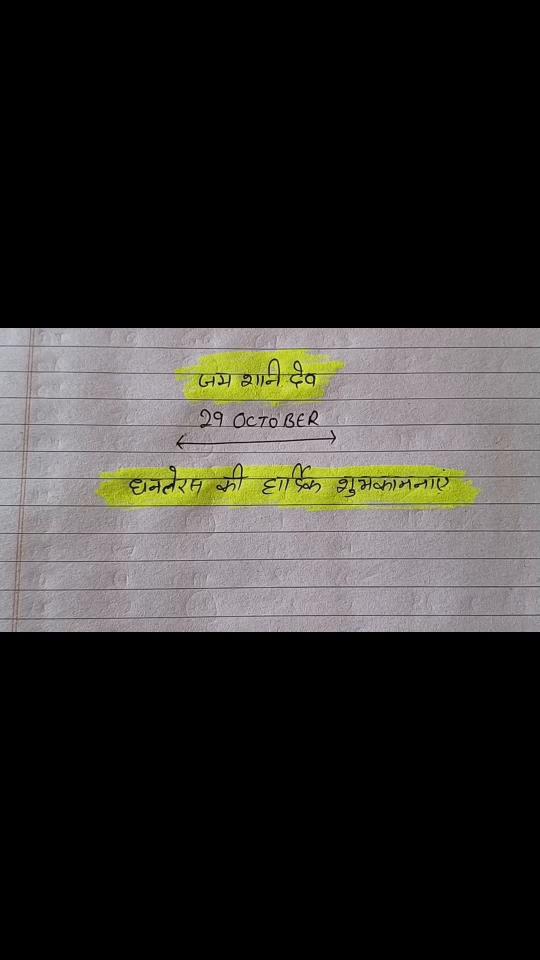 जय शनि देव
29 OCTOBER
धनतेरस की हार्दिक शुभकामनाएं